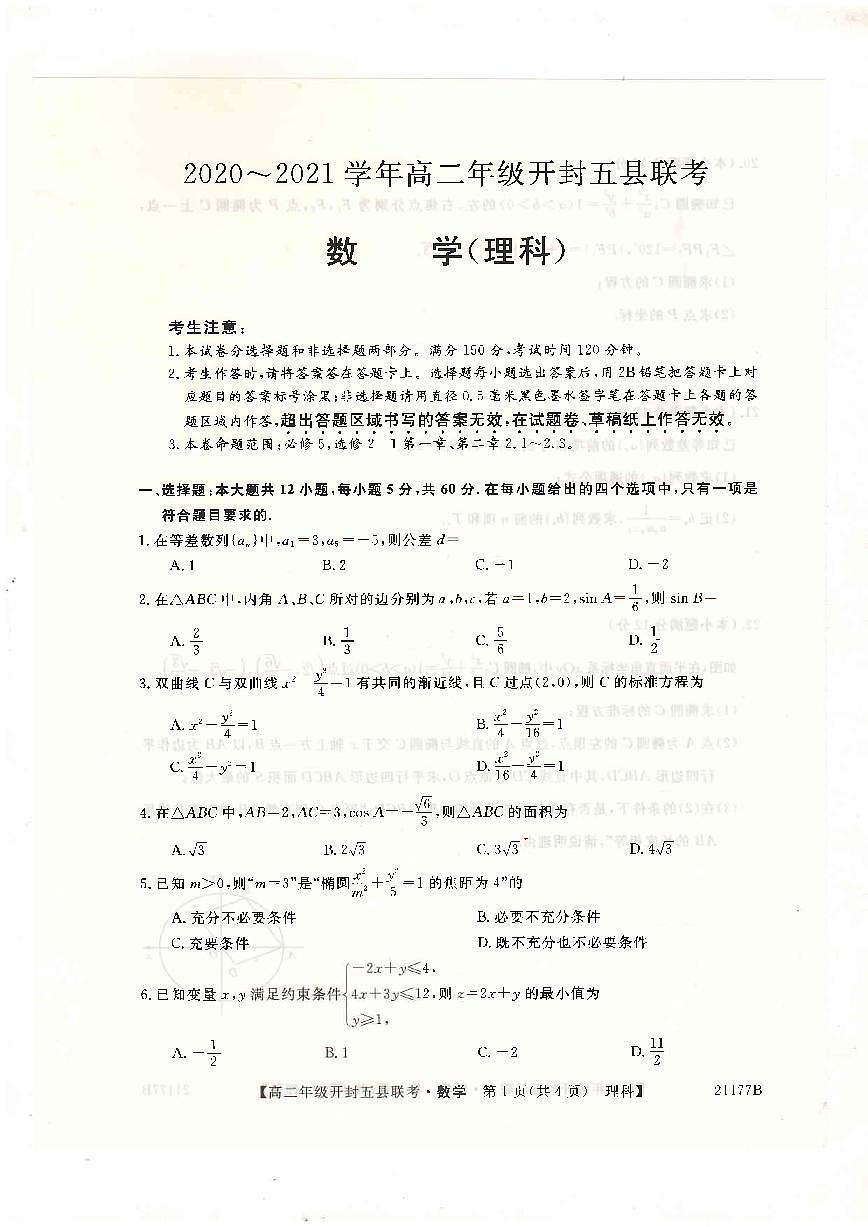 2020～2021学年高二年级开封五县联考
数 学(理科)
考生注意:
1. 本试卷分选择题和非选择题两部分。满分150分,考试时间120分钟。
2. 考生作答时,请将答案答在答题卡上。选择题每小题选出答案后,用2B铅笔把答题卡上对
应题目的答案标号涂黑;非选择题请用直径0.5毫米黑色墨水签字笔在答题卡上各题的答
题区域内作答,超出答题区域书写的答案无效,在试题卷、草稿纸上作答无效。
3. 本卷命题范围:必修5,选修2 1第一章、第二章2.1～2.3。
一、选择题:本大题共12小题,每小题5分,共60分.在每小题给出的四个选项中,只有一项是
符合题目要求的.
1. 在等差数列{aₙ}中,a₁=3,a₅=-5,则公差d=
A. 1 B. 2 C. -1 D. -2
2. 在△ABC中,内角A、B、C所对的边分别为a,b,c,若a=1,b=2,sin A=1/6,则sin B=
A. 2/3 B. 1/3 C. 5/6 D. 1/2
3. 双曲线C与双曲线x² y²/4=1有共同的渐近线,且C过点(2,0),则C的标准方程为
A. x²-y²/4=1 B. x²/4-y²/16=1
C. x²/4-y²=1 D. x²/16-y²/4=1
4. 在△ABC中,AB=2,AC=3,cos A=-√6/3,则△ABC的面积为
A. √3 B. 2√3 C. 3√3 D. 4√3
5. 已知m>0,则“m=3”是“椭圆x²/m²+y²/5=1的焦距为4”的
A. 充分不必要条件 B. 必要不充分条件
C. 充要条件 D. 既不充分也不必要条件
6. 已知变量x,y满足约束条件{-2x+y≤4, 4x+3y≤12, y≥1,则z=2x+y的最小值为
A. -1/2 B. 1 C. -2 D. 11/2
【高二年级开封五县联考·数学 第1页(共4页) 理科】 21177B